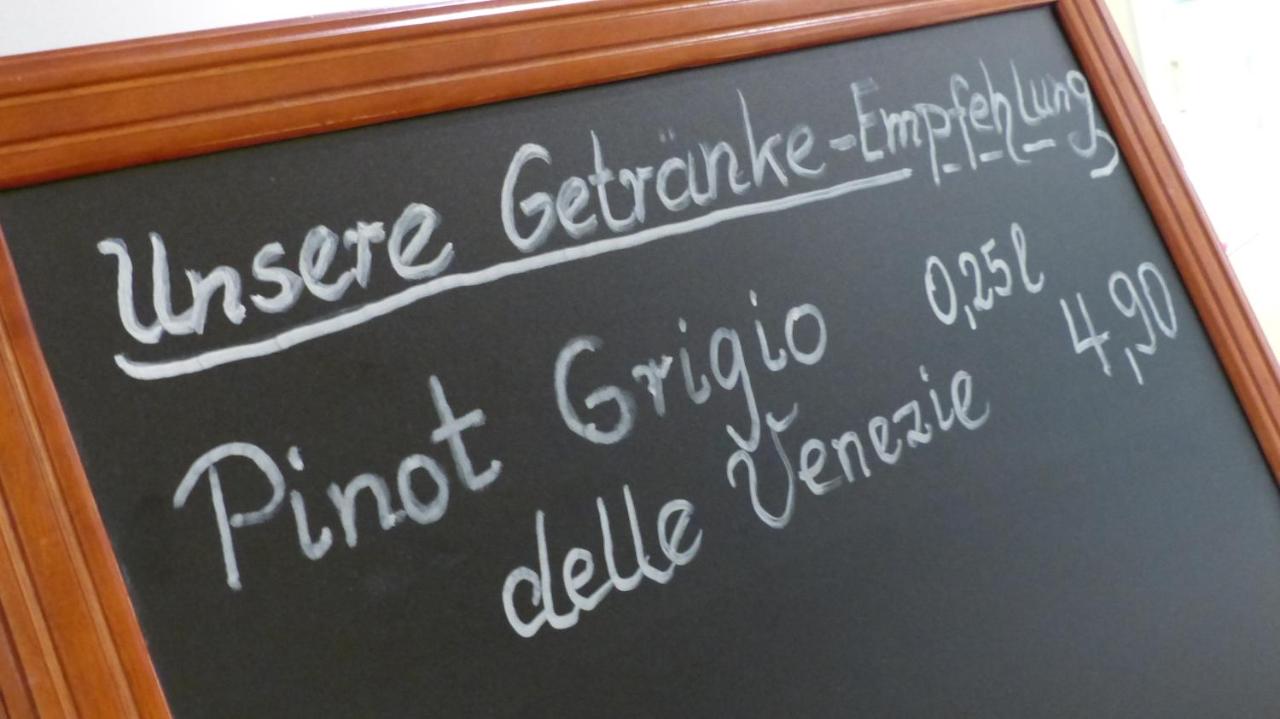 Unsere Getränke-Empfehlung
Pinot Grigio 0,25l
delle Venezie 4,90